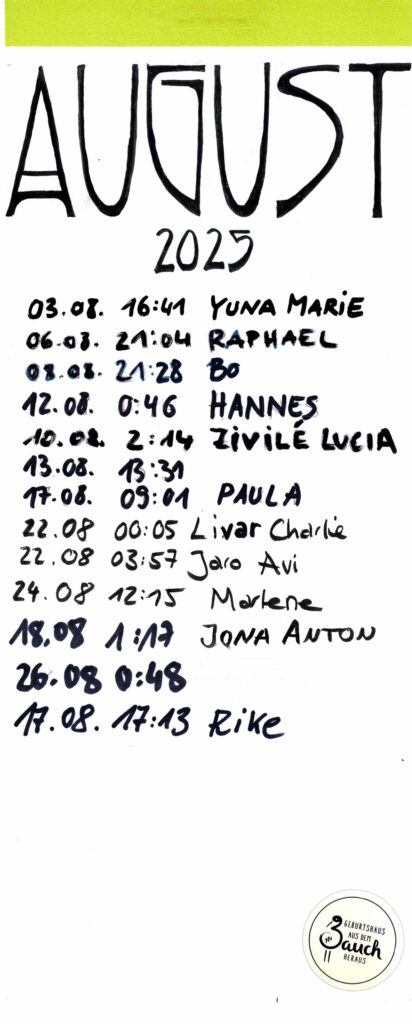 AUGUST
2025
03.08. 16:41 YUNA MARIE
06.08. 21:04 RAPHAEL
08.08. 21:28 BO
12.08. 0:46 HANNES
10.08. 2:14 ZIVILÉ LUCIA
13.08. 13:31
17.08. 09:01 PAULA
22.08 00:05 Livar Charlie
22.08 03:57 Jaro Avi
24.08 12:15 Marlene
18.08 1:17 JONA ANTON
26.08 0:48
17.08. 17:13 Rike
GEBURTSHAUS
AUS DEM
Bauch
HERAUS